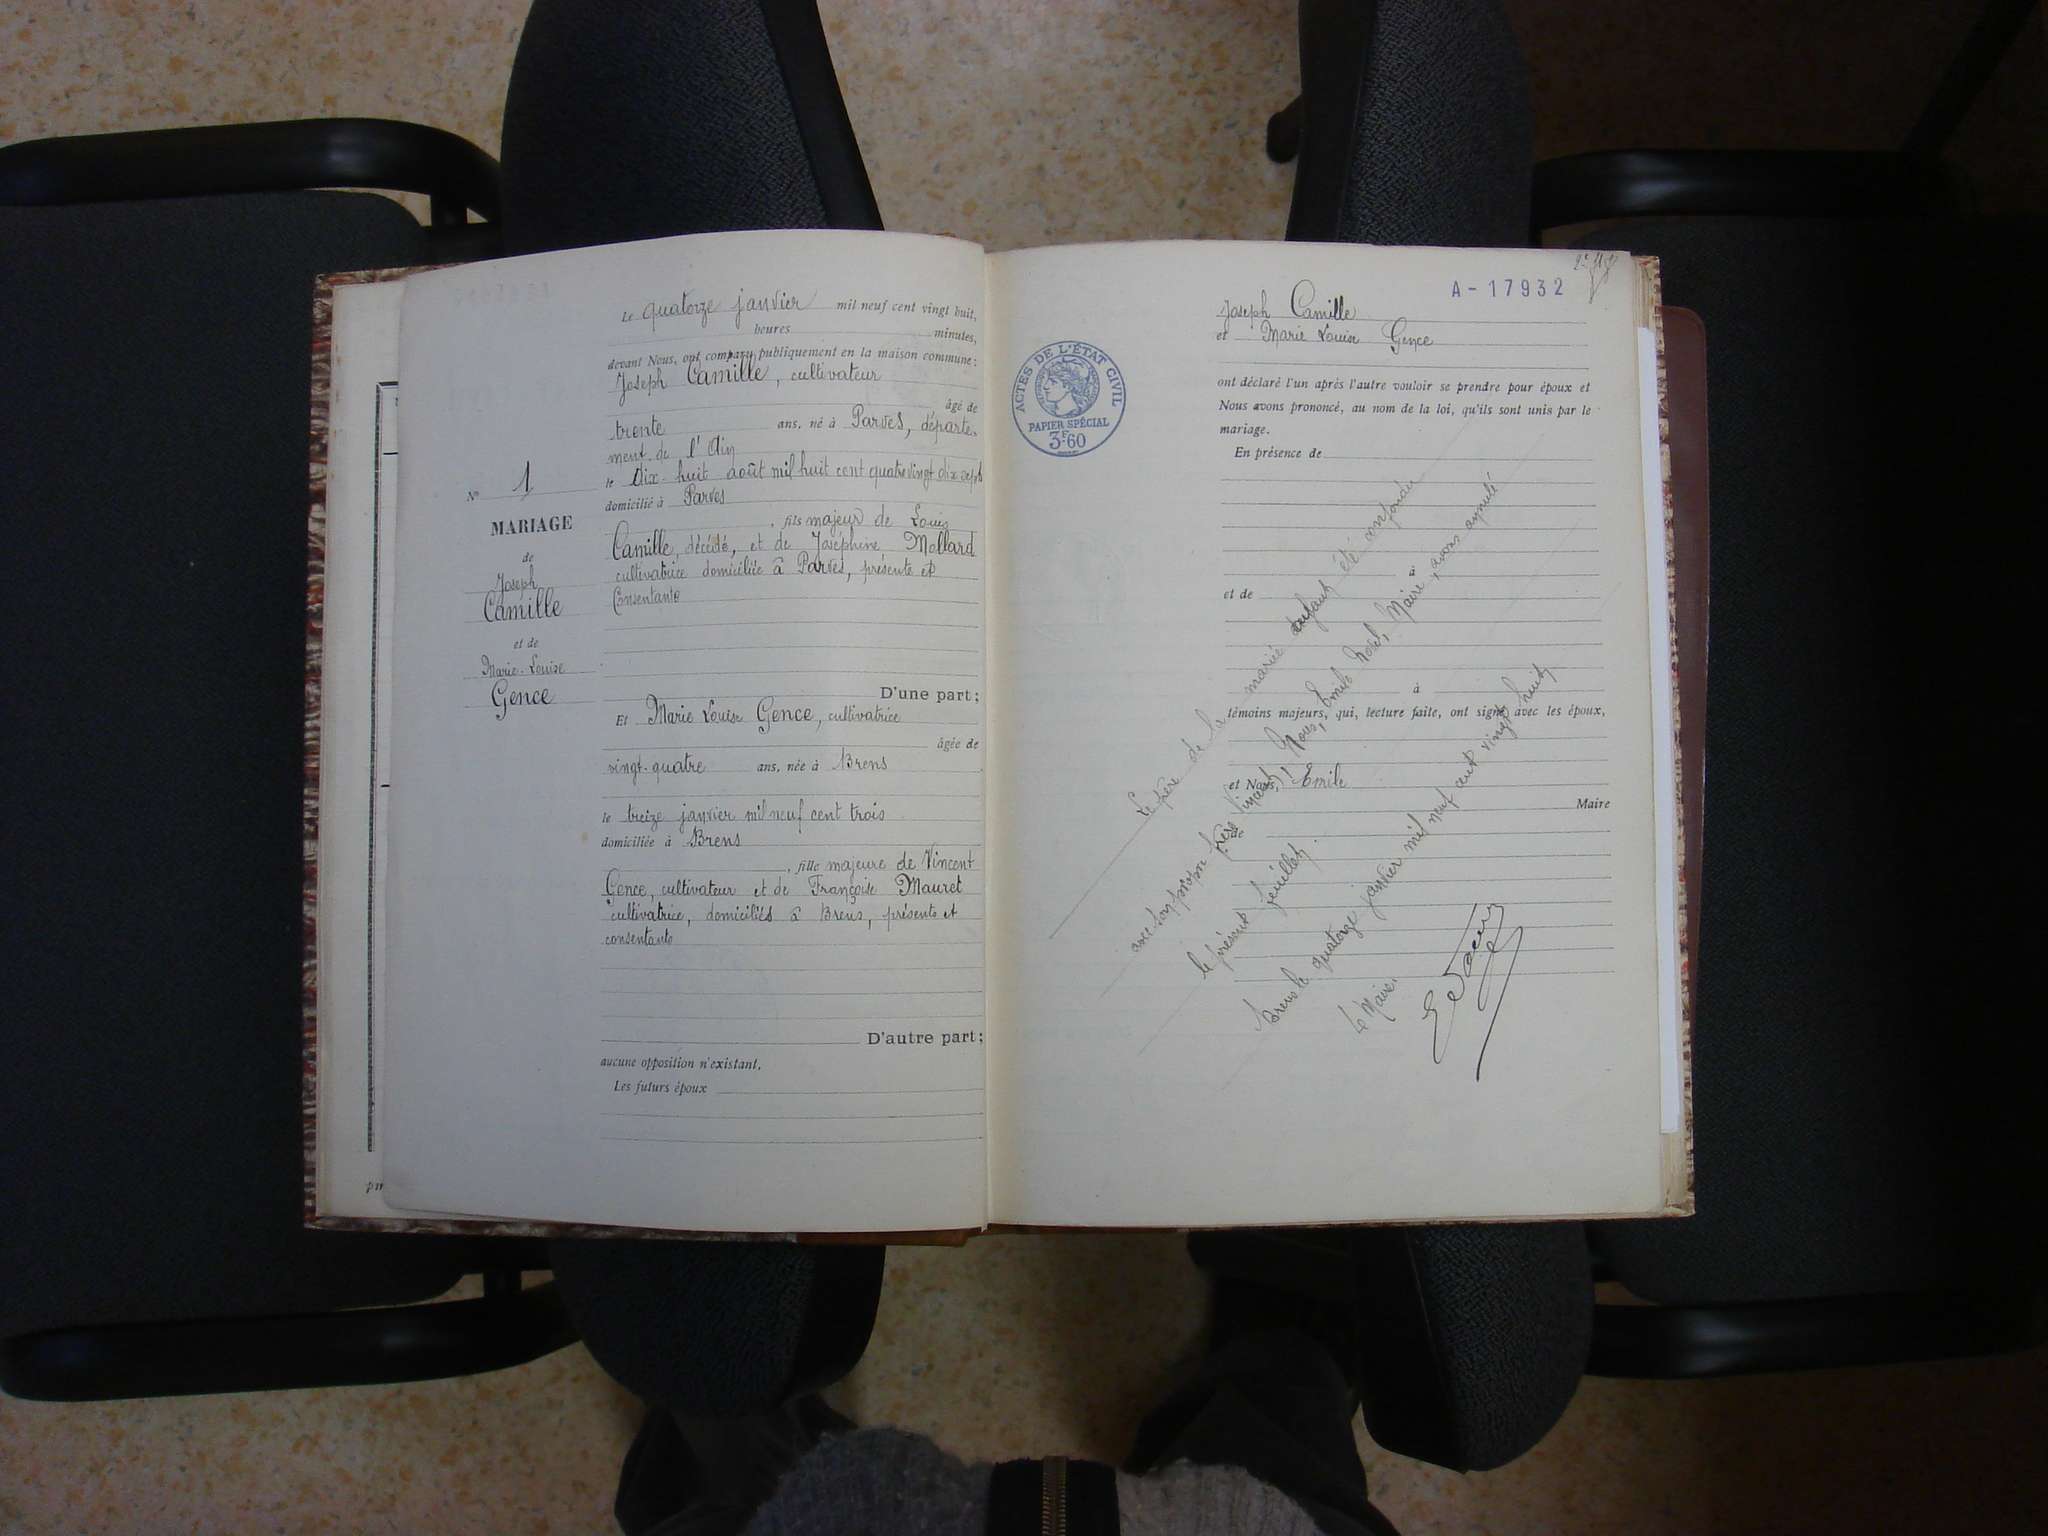 Le quatorze janvier mil neuf cent vingt huit,
heures minutes,
devant Nous, ont comparu publiquement en la maison commune :
Joseph Camille, cultivateur
âgé de
trente ans, né à Parves, départe-
ment de l'Ain
le dix-huit août mil huit cent quatre vingt dix sept
domicilié à Parves
, fils majeur de Louis
Camille, décédé, et de Joséphine Mollard
cultivatrice domiciliée à Parves, présente et
Consentante
D'une part ;
Et Marie Louise Gence, cultivatrice
âgée de
vingt-quatre ans, née à Brens
le treize janvier mil neuf cent trois
domiciliée à Brens
, fille majeure de Vincent
Gence, cultivateur et de Françoise Mauret
cultivatrice, domiciliés à Brens, présents et
consentants
D'autre part ;
aucune opposition n'existant,
Les futurs époux
N° 1
MARIAGE
de
Joseph
Camille
et de
Marie-Louise
Gence
A-17932
Joseph Camille
et Marie Louise Gence
ont déclaré l'un après l'autre vouloir se prendre pour époux et
Nous avons prononcé, au nom de la loi, qu'ils sont unis par le
mariage.
En présence de
à
et de
à
témoins majeurs, qui, lecture faite, ont signé avec les époux,
et Nous, Emile
Maire
de
ACTES DE L'ÉTAT CIVIL
PAPIER SPÉCIAL
3F.60
Le père de la mariée ayant été confondu
avec son propre frère Vincent, Nous, Emile, Maire, avons annulé
le présent feuillet.
Brens le quatorze janvier mil neuf cent vingt huit
Le Maire.